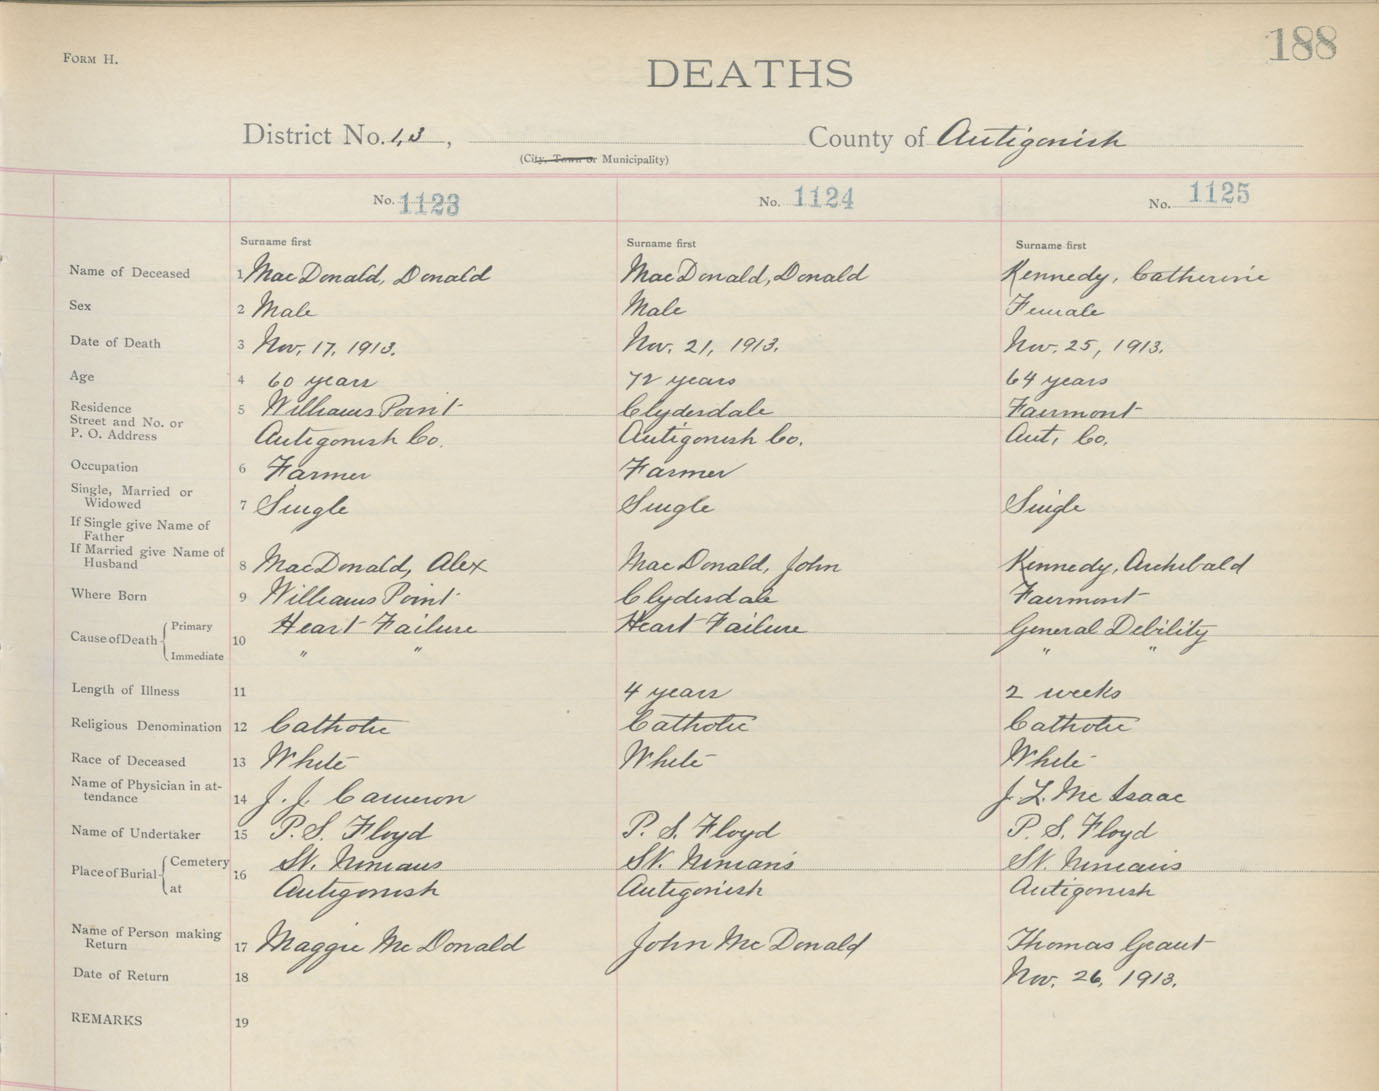 FORM H.
188
DEATHS
District No. 1,3, County of Antigonish
(City, Town or Municipality)
No. 1123 No. 1124 No. 1125
Surname first Surname first Surname first
Name of Deceased 1 MacDonald, Donald MacDonald, Donald Kennedy, Catherine
Sex 2 Male Male Female
Date of Death 3 Nov. 17, 1913. Nov. 21, 1913. Nov. 25, 1913.
Age 4 60 years 72 years 64 years
Residence 5 Williams Point Clydesdale Fairmont
Street and No. or
P. O. Address Antigonish Co. Antigonish Co. Ant. Co.
Occupation 6 Farmer Farmer
Single, Married or
Widowed 7 Single Single Single
If Single give Name of
Father
If Married give Name of
Husband 8 MacDonald, Alex MacDonald, John Kennedy, Archibald
Where Born 9 Williams Point Clydesdale Fairmont
Cause of Death Primary 10 Heart Failure Heart Failure General Debility
Immediate " " " "
Length of Illness 11 4 years 2 weeks
Religious Denomination 12 Catholic Catholic Catholic
Race of Deceased 13 White White White
Name of Physician in at-
tendance 14 J. J. Cameron J. L. McIsaac
Name of Undertaker 15 P. S. Floyd P. S. Floyd P. S. Floyd
Place of Burial Cemetery 16 St. Ninians St. Ninian's St. Ninian's
at Antigonish Antigonish Antigonish
Name of Person making
Return 17 Maggie McDonald John McDonald Thomas Grant
Date of Return 18 Nov. 26, 1913.
REMARKS 19